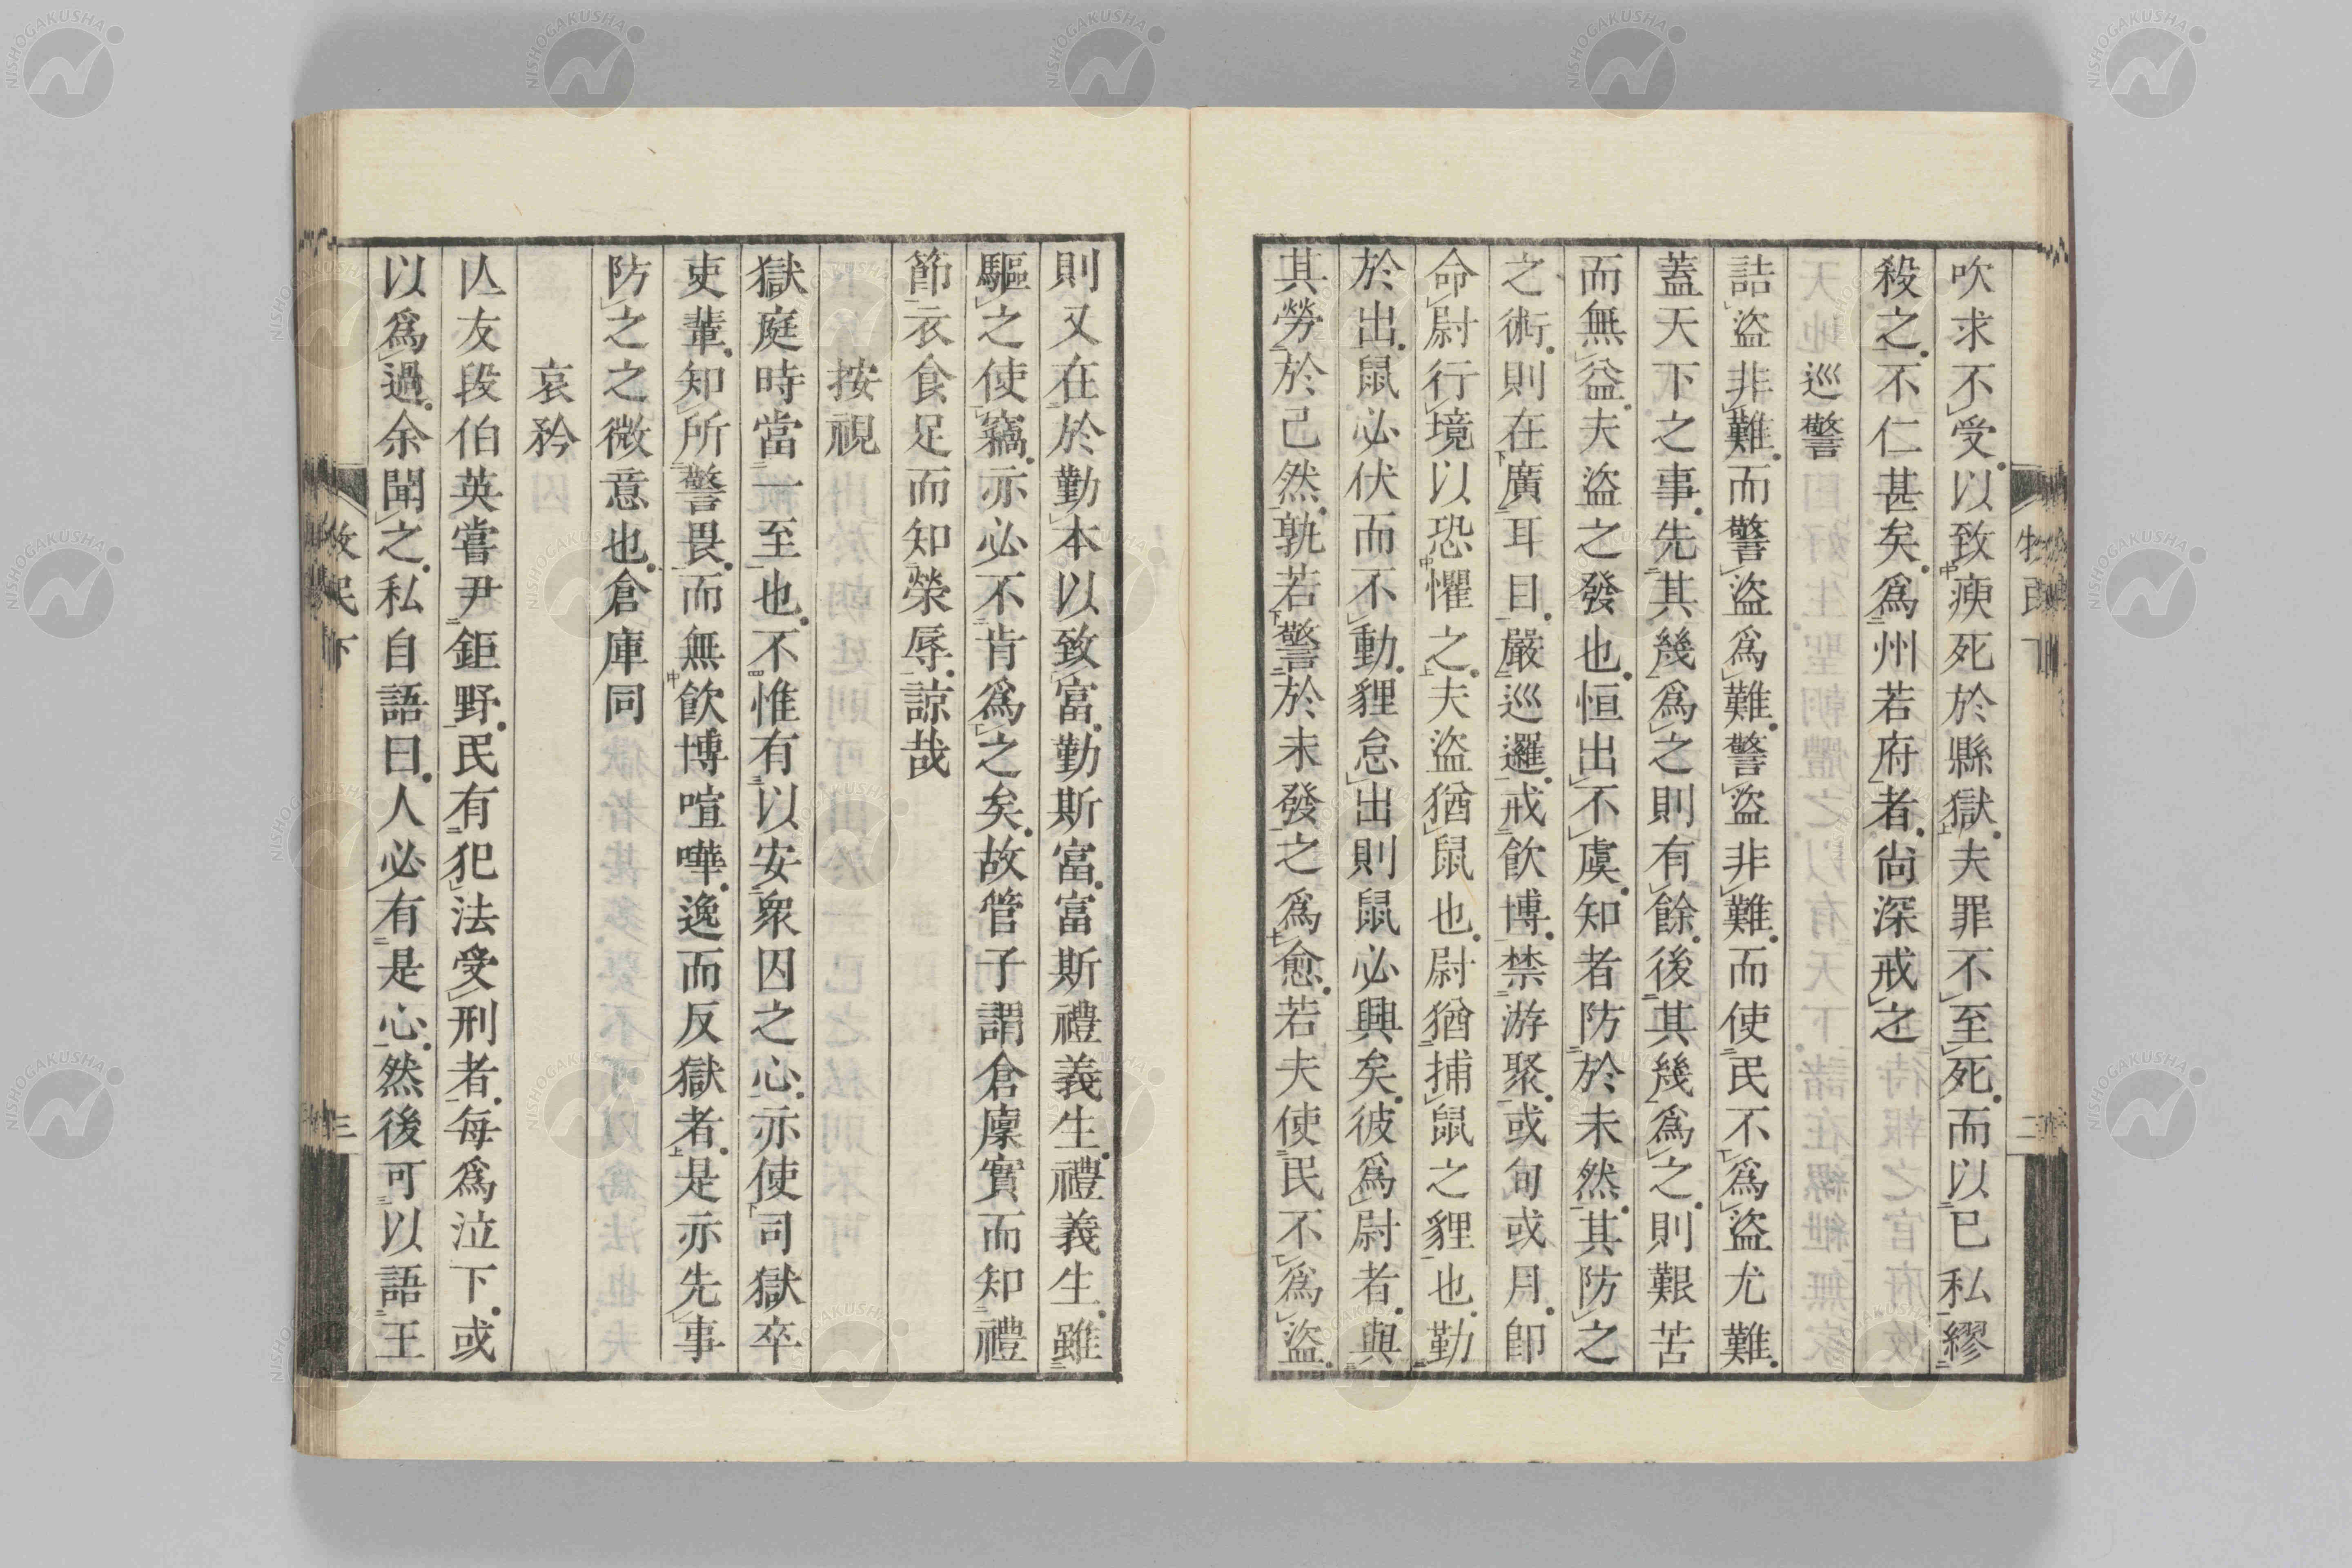 吹求不受以致瘐死於縣獄夫罪不至死而以已私繆
殺之不仁甚矣爲州若府者尙深戒之
巡警
詰盜非難而警盜爲難警盜非難而使民不爲盜尤難
蓋天下之事先其幾爲之則有餘後其幾爲之則艱苦
而無益夫盜之發也恒出不虞知者防於未然其防之
之術則在廣耳目嚴巡邏戒飮博禁游聚或旬或月卽
命尉行境以恐懼之夫盜猶鼠也尉猶捕鼠之貍也勤
於出鼠必伏而不動貍怠出則鼠必興矣彼爲尉者與
其勞於己然孰若警於未發之爲愈若夫使民不爲盜
則又在於勤本以致富勤斯富富斯禮義生禮義生雖
驅之使竊亦必不肯爲之矣故管子謂倉廩實而知禮
節衣食足而知榮辱諒哉
按視
獄庭時當一至也不惟有以安衆囚之心亦使司獄卒
吏輩知所警畏而無飮博喧嘩逸而反獄者是亦先事
防之之微意也倉庫同
哀矜
亾友段伯英嘗尹鉅野民有犯法受刑者每爲泣下或
以爲過余聞之私自語曰人必有是心然後可以語王
牧民下
三
NISHOGAKUSHA